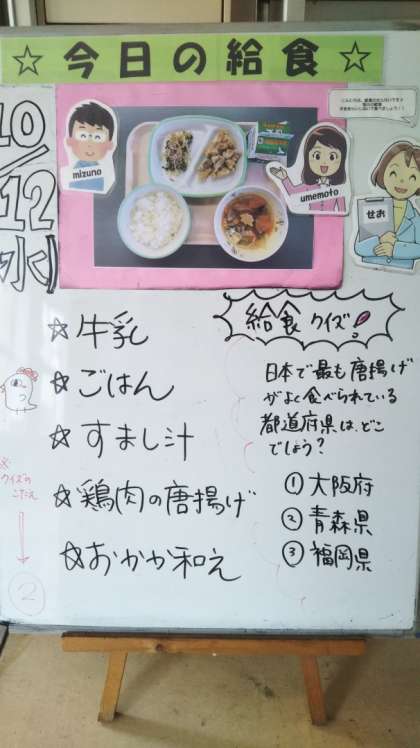 ☆ 今日の給食 ☆
10/12
(水)
mizuno
umemoto
せお
☆ 牛乳
☆ ごはん
☆ すまし汁
☆ 鶏肉の唐揚げ
☆ おかか和え
給食クイズ!
日本で最も唐揚げ
がよく食べられている
都道府県は、どこ
でしょう?
① 大阪府
② 青森県
③ 福岡県
※
クイズの
こたえ
↓
②